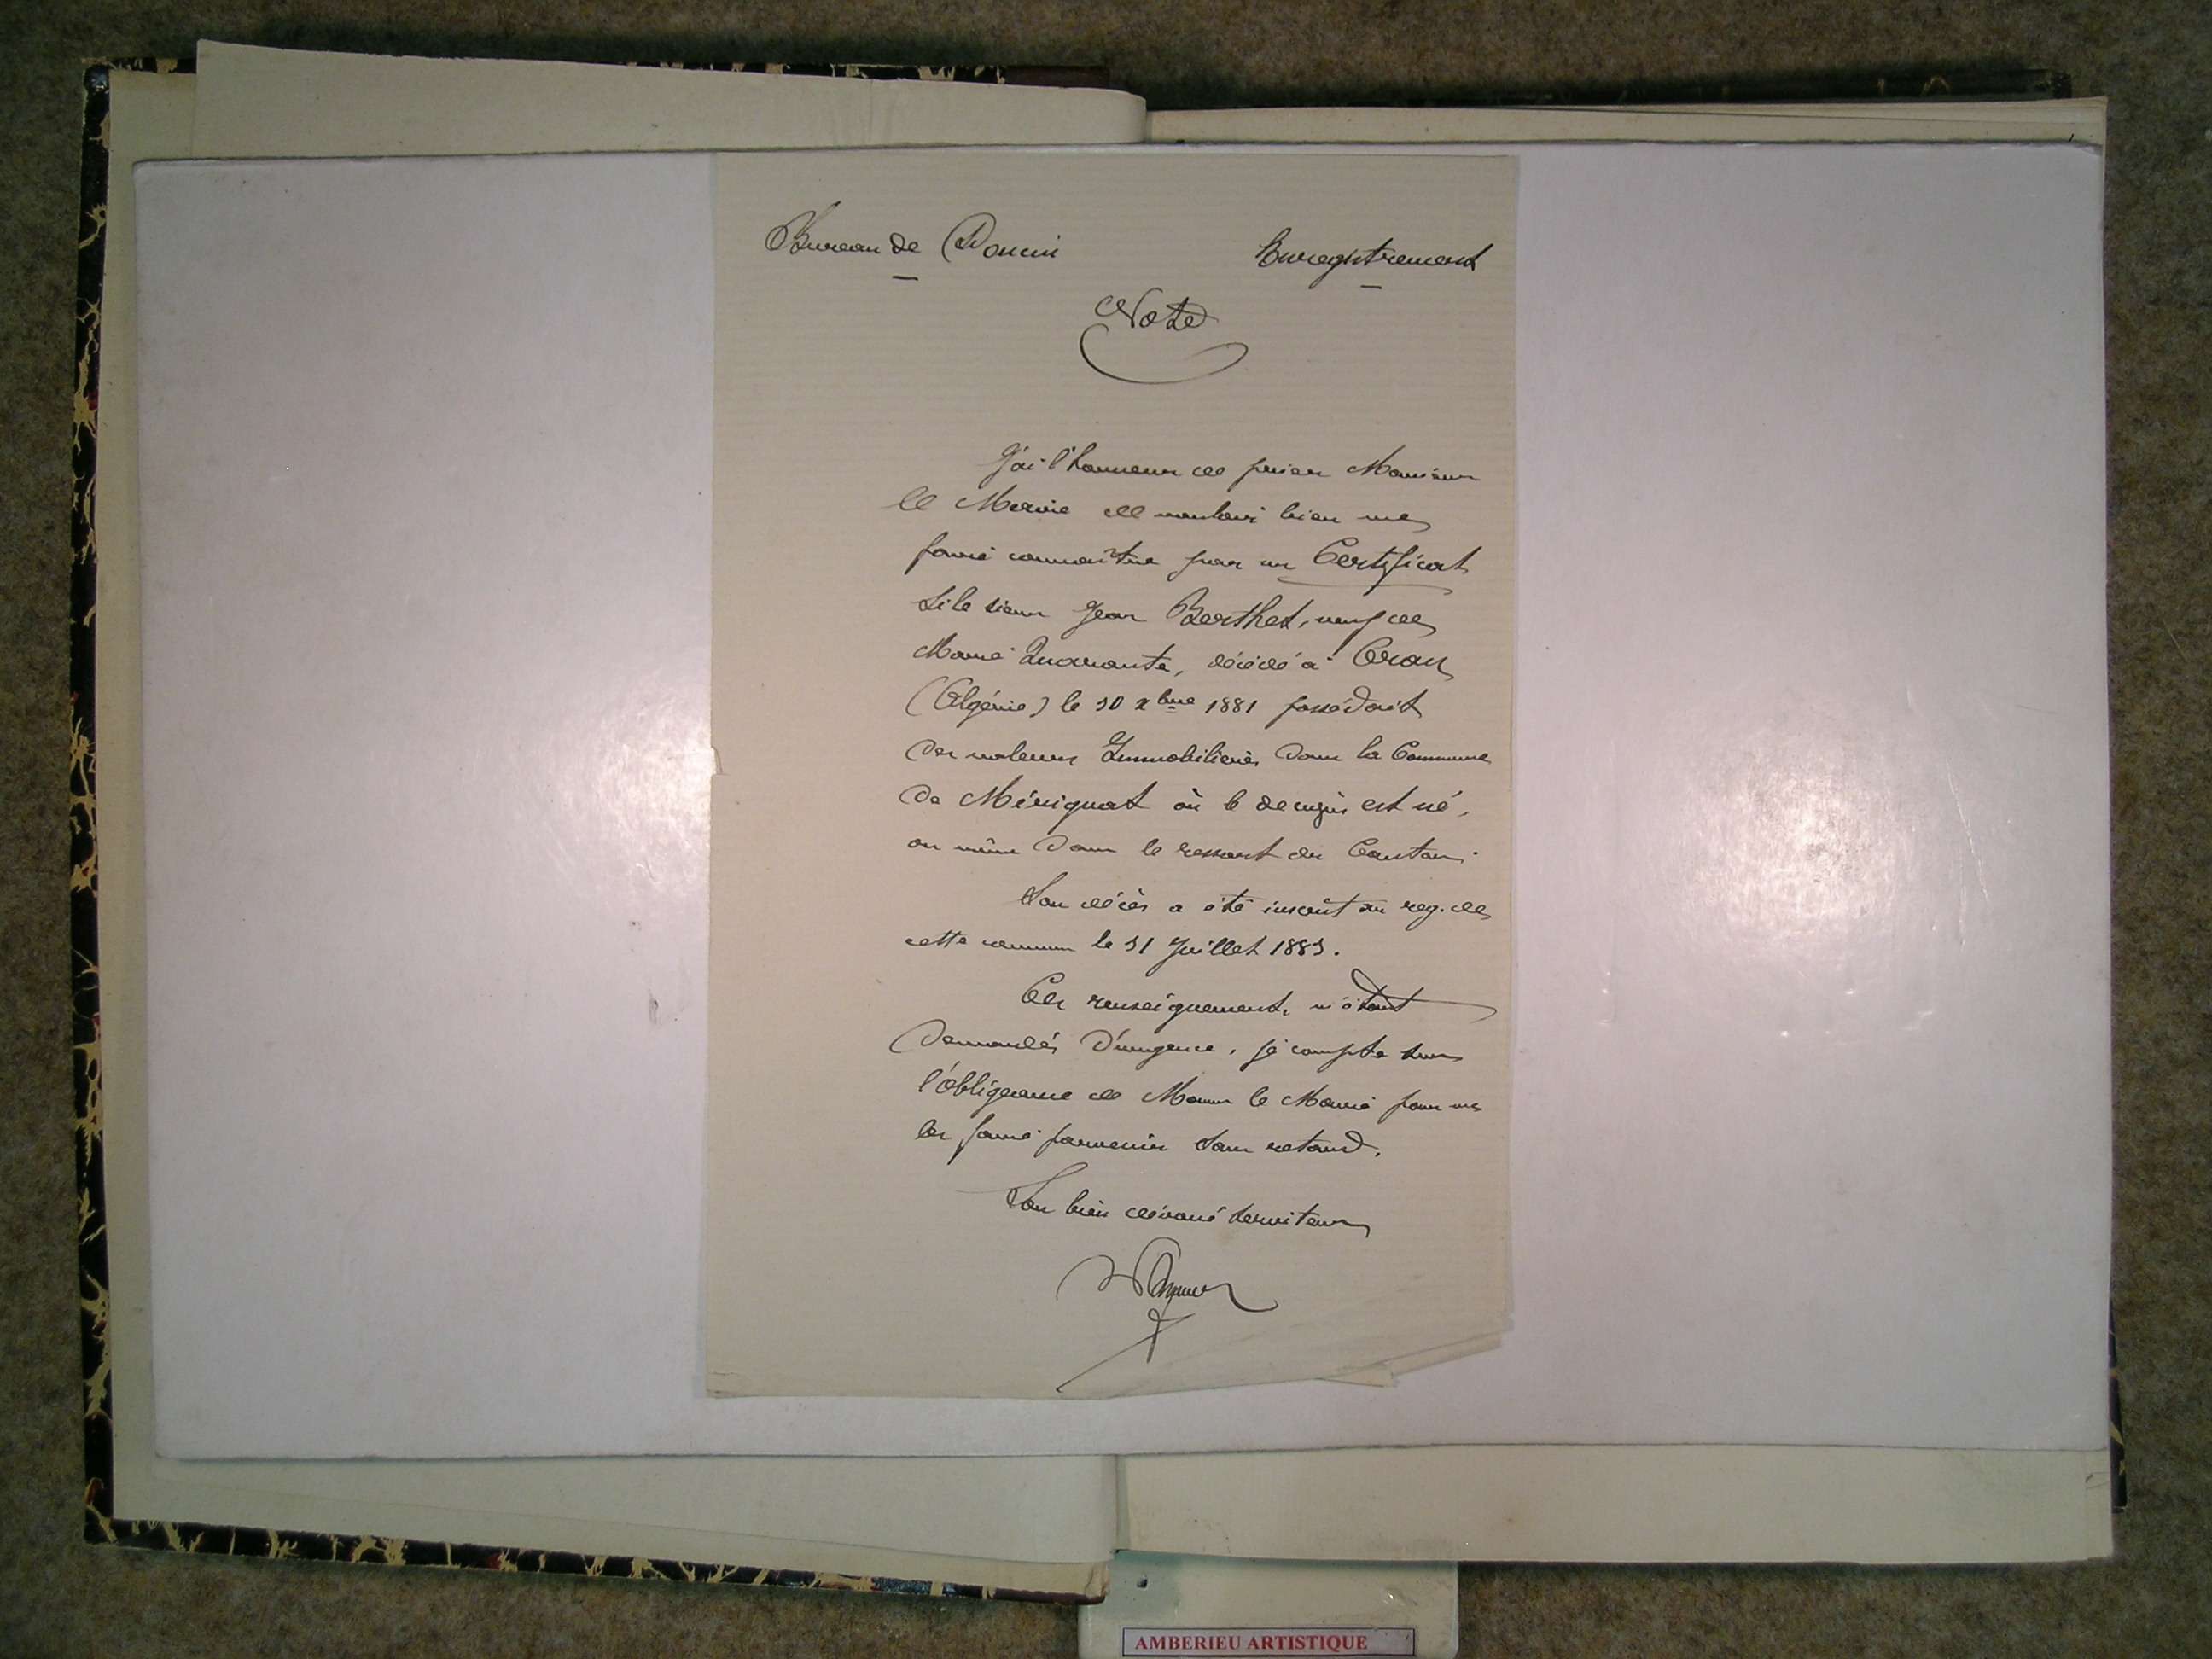 Bureau de Poncin
Enregistrement
Note
J'ai l'honneur de prier Monsieur
le Maire de vouloir bien me
faire connaître par un Certificat
si le sieur Jean Berthet, veuf de
Marie Quarante, décédé à Oran
(Algérie) le 30 xbre 1881 possédait
des valeurs Immobilières dans la Commune
de Mérignat où le de cujus est né,
ou même dans le ressort du Canton.
Son décès a été inscrit au reg. de
cette commune le 31 Juillet 1883.
Ces renseignements m'étant
demandés d'urgence, je compte sur
l'obligeance de Monsr le Maire pour me
les faire parvenir sans retard.
Son bien dévoué serviteur
AMBERIEU ARTISTIQUE